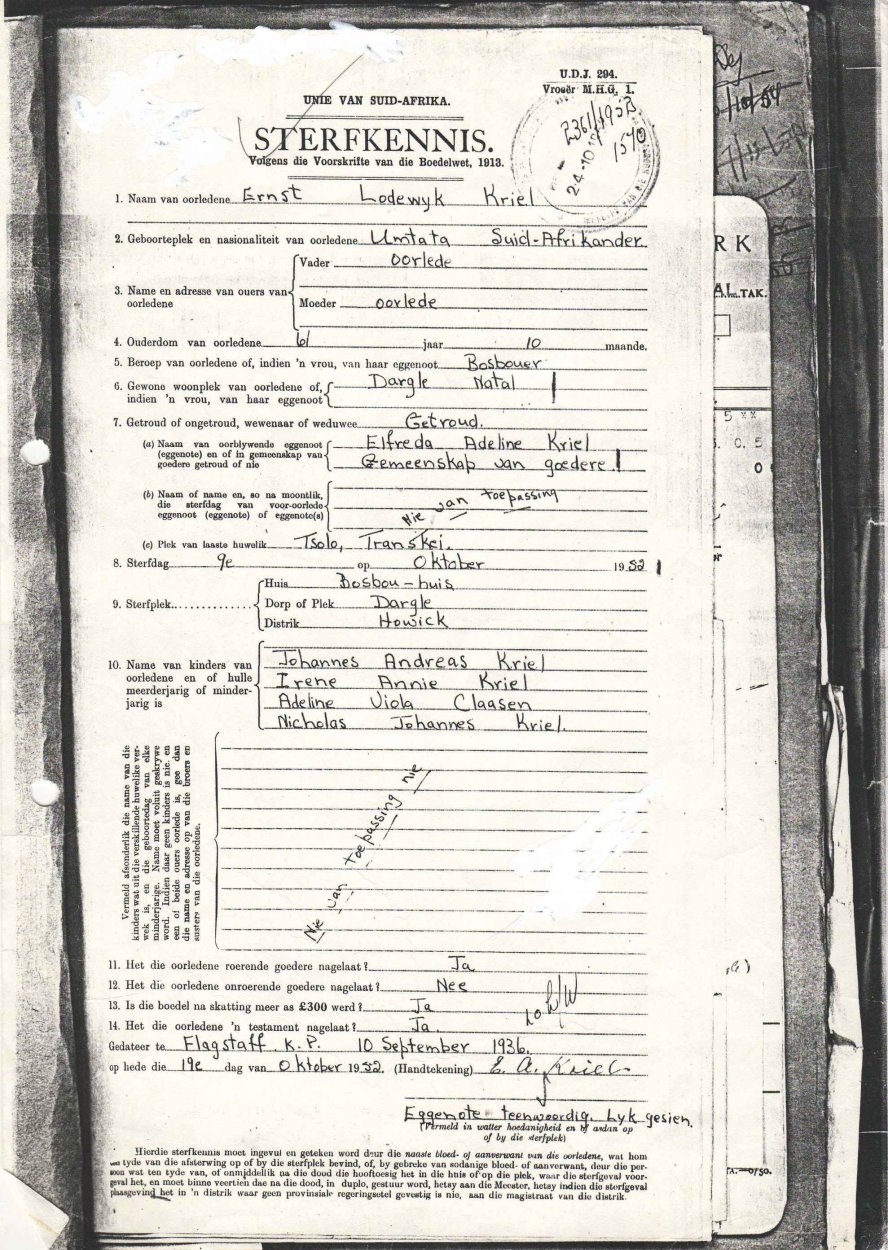 U.D.J. 294.
Vroeër M.H.G. 1.
UNIE VAN SUID-AFRIKA.
STERFKENNIS.
Volgens die Voorskrifte van die Boedelwet, 1913.
2361/1952
24-10-
1570
1. Naam van oorledene Ernst Lodewyk Kriel
2. Geboorteplek en nasionaliteit van oorledene Umtata Suid-Afrikander
3. Name en adresse van ouers van oorledene
Vader oorlede
Moeder oorlede
4. Ouderdom van oorledene 61 jaar 10 maande.
5. Beroep van oorledene of, indien 'n vrou, van haar eggenoot Bosbouer
6. Gewone woonplek van oorledene of, indien 'n vrou, van haar eggenoot
Dargle Natal
7. Getroud of ongetroud, wewenaar of weduwee Getroud.
(a) Naam van oorblywende eggenoot (eggenote) en of in gemeenskap van goedere getroud of nie
Elfreda Adeline Kriel
Gemeenskap van goedere
(b) Naam of name en, so na moontlik, die sterfdag van voor-oorlede eggenoot (eggenote) of eggenote(s)
Nie van toepassing
(c) Plek van laaste huwelik Tsolo, Transkei.
8. Sterfdag 9e op Oktober 1952
9. Sterfplek
Huis Bosbou-huis
Dorp of Plek Dargle
Distrik Howick
10. Name van kinders van oorledene en of hulle meerderjarig of minderjarig is
Johannes Andreas Kriel
Irene Annie Kriel
Adeline Viola Claasen
Nicholas Johannes Kriel.
Vermeld afsonderlik die name van die
kinders wat uit die verskillende huwelike ver-
wek is, en die geboortedag van elke
minderjarige. Name moet voluit geskrywe
word. Indien daar geen kinders is nie, en
een of beide ouers oorlede is, gee dan
die name en adresse op van die broers en
susters van die oorledene.
Nie van toepassing nie
11. Het die oorledene roerende goedere nagelaat? Ja
12. Het die oorledene onroerende goedere nagelaat? Nee
13. Is die boedel na skatting meer as £300 werd? Ja
14. Het die oorledene 'n testament nagelaat? Ja.
Gedateer te Flagstaff K.P. 10 September 1936.
op hede die 19e dag van Oktober 1952. (Handtekening) E. A. Kriel.
Eggenote teenwoordig. Lyk gesien.
(Vermeld in watter hoedanigheid en of aldan op
of by die sterfplek)
Hierdie sterfkennis moet ingevul en geteken word deur die naaste bloed- of aanverwant van die oorledene, wat hom
ten tyde van die afsterwing op of by die sterfplek bevind, of, by gebreke van sodanige bloed- of aanverwant, deur die per-
soon wat ten tyde van, of onmiddellik na die dood die hooftoesig het in die huis of op die plek, waar die sterfgeval voor-
geval het, en moet binne veertien dae na die dood, in duplo, gestuur word, hetsy aan die Meester, hetsy indien die sterfgeval
plaasgevind het in 'n distrik waar geen provinsiale regeringsetel gevestig is nie, aan die magistraat van die distrik.
RK
AL TAK.